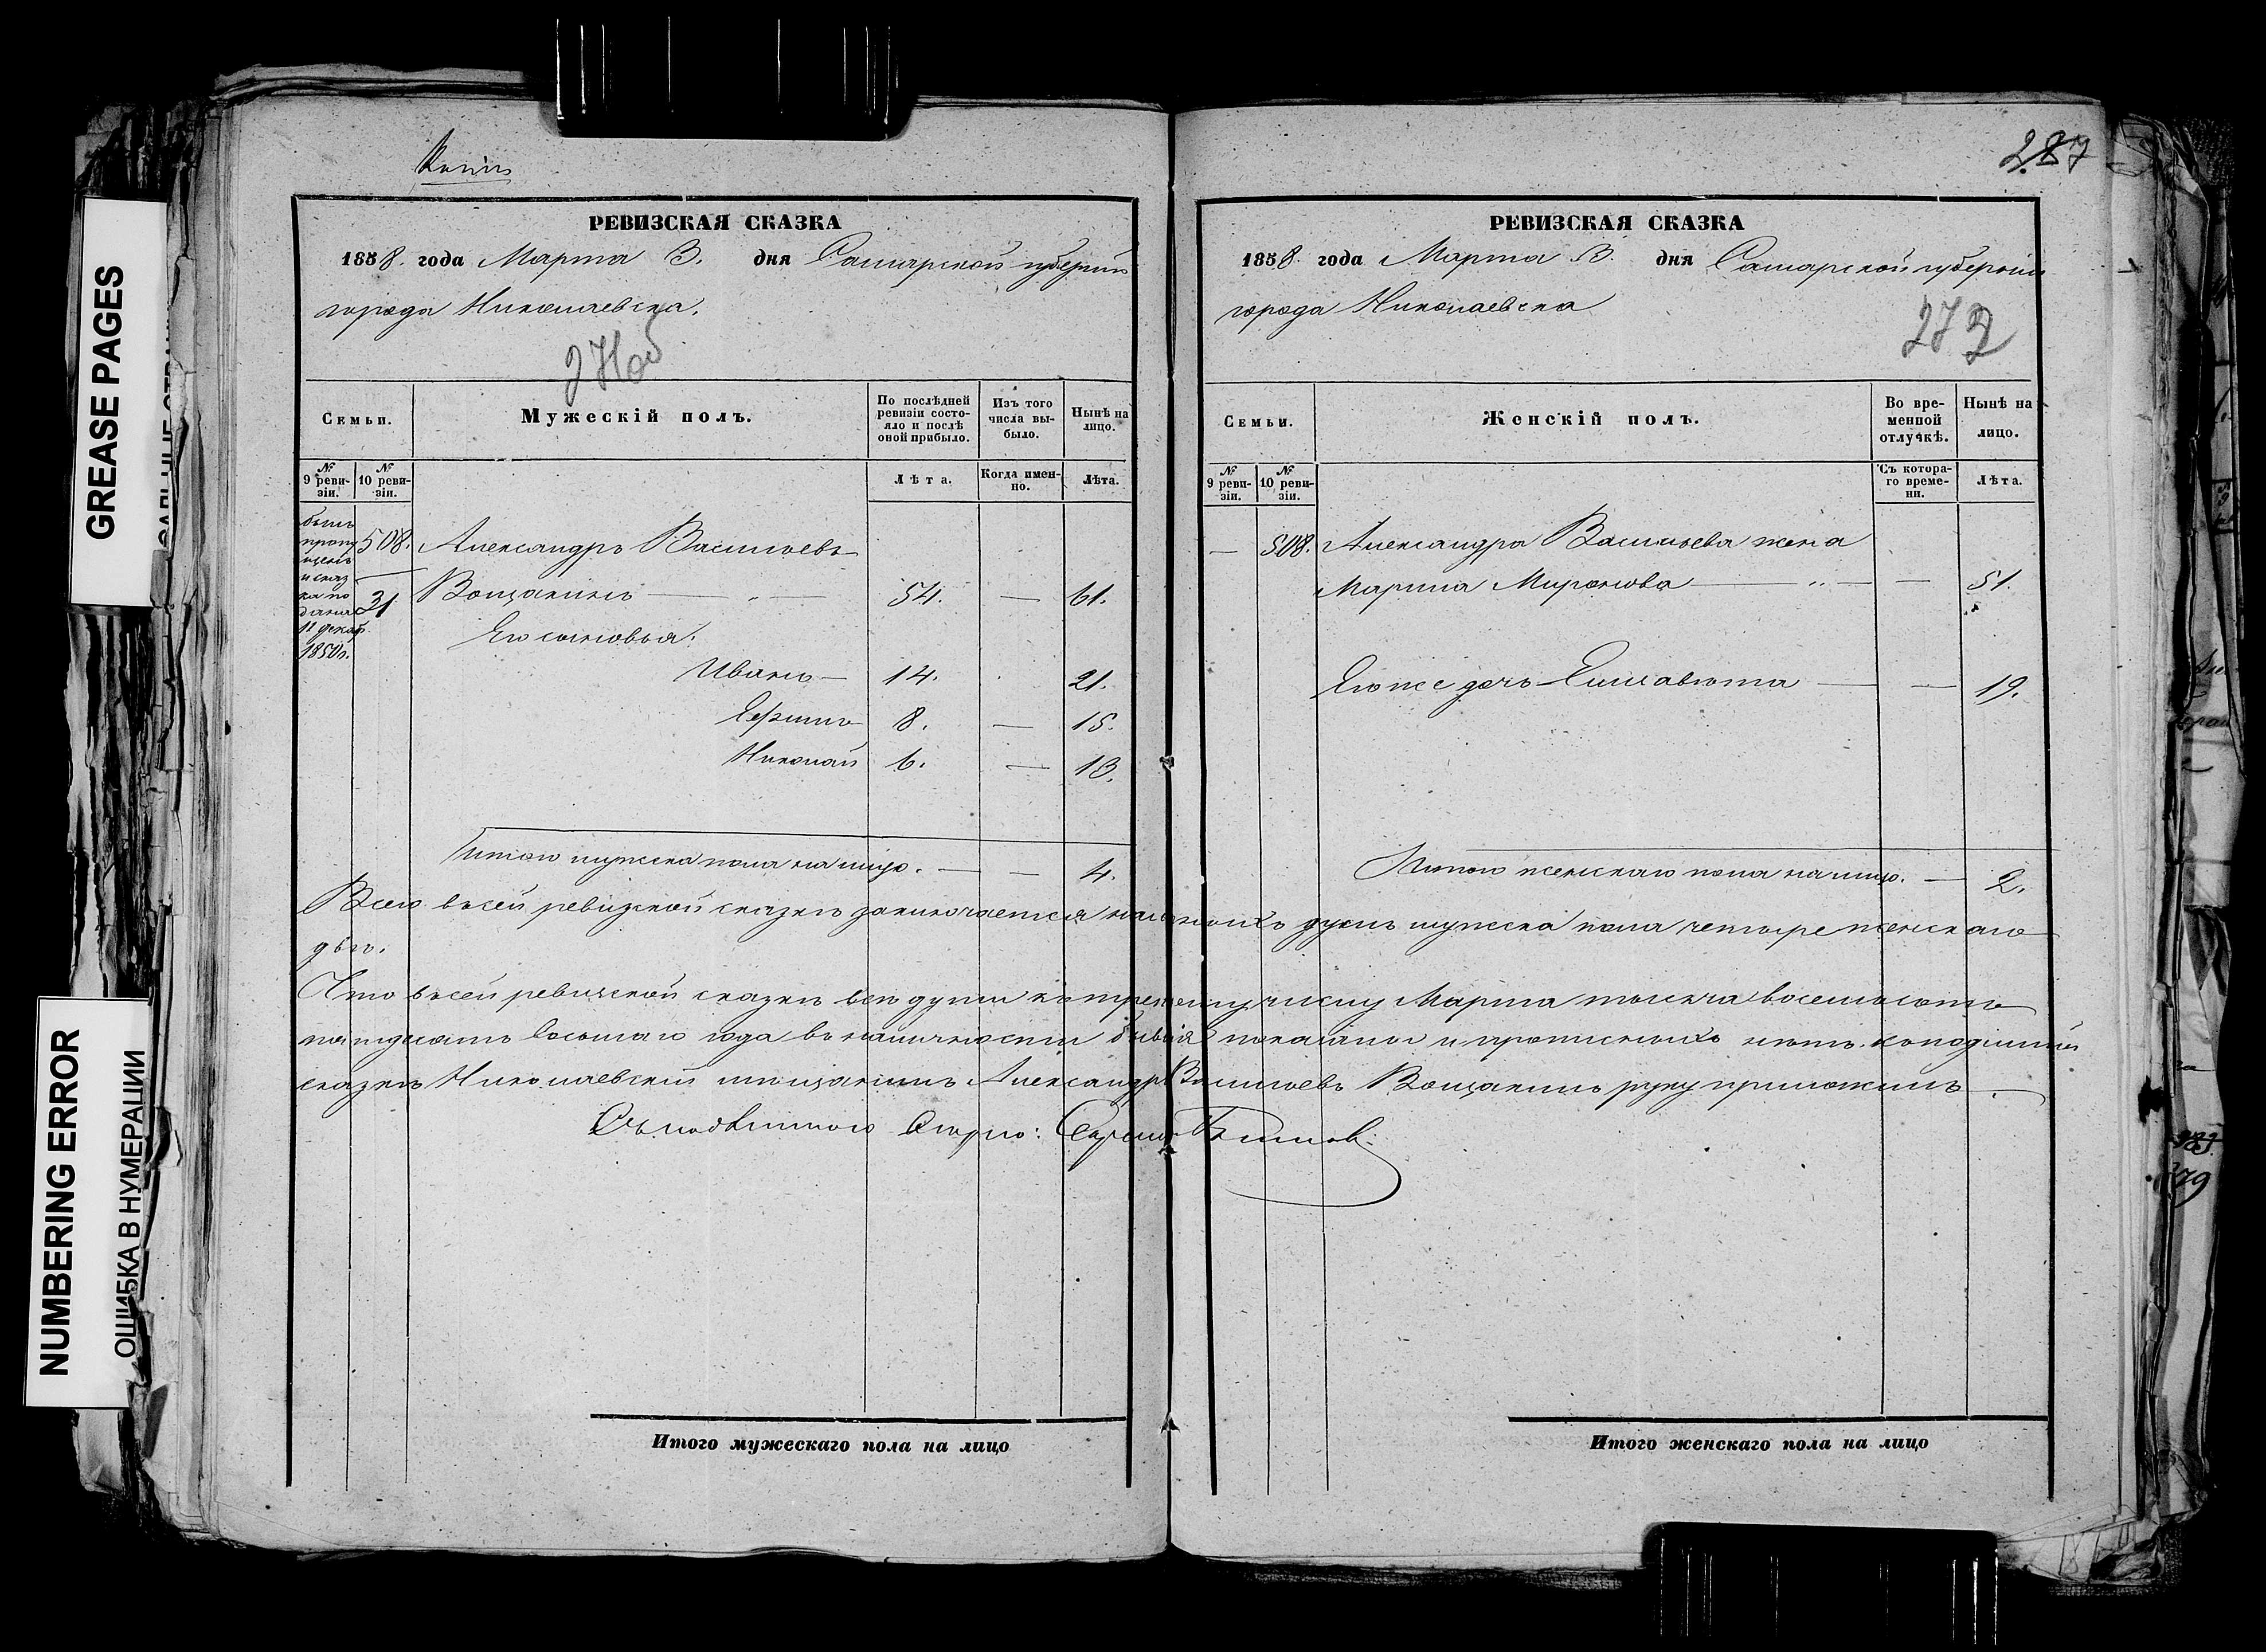 GREASE PAGES
NUMBERING ERROR
ОШИБКА В НУМЕРАЦИИ
Копія
РЕВИЗСКАЯ СКАЗКА
1858. года Марта 3. дня Самарской губерніи
города Николаевска.
271об
Семьи.
Мужескій полъ.
По послѣдней ревизіи состояло и послѣ оной прибыло.
Изъ того числа выбыло.
Нынѣ на лицо.
№ 9 ревизіи.
№ 10 ревизіи.
Лѣта.
Когда именно.
Лѣта.
былъ
пропу
щенъ
и сказ
ка по
дана
11 декаб.
1850г.
508. Александръ Васильевъ
31 Вощакинъ — 54. — 61.
Его сыновья:
Иванъ — 14. 21.
Ефимъ 8. — 15.
Николай 6. — 13.
Итого мужска пола на лицо. — — 4.
Итого мужескаго пола на лицо
287
РЕВИЗСКАЯ СКАЗКА
1858. года Марта 3. дня Самарской губерніи
города Николаевска
272
Семьи.
Женскій полъ.
Во временной отлучкѣ.
Нынѣ на лицо.
№ 9 ревизіи.
№ 10 ревизіи.
Съ котораго времени.
Лѣта.
— 508. Александра Васильева жена
Марина Миронова — — 51.
Его же дочь Елисавета — — 19.
Итого женскаго пола на лицо. — 2.
Всего въ сей ревизской сказкѣ заключается наличныхъ душъ мужска пола четыре женскаго
двѣ.
Что въ сей ревизской сказкѣ всѣ души къ третьему числу Марта тысяча восемьсотъ
пятдесятъ восьмаго года въ наличности бывшія показаны и прописныхъ нѣтъ. к подлинной
сказкѣ Николаевскій мѣщанинъ Александръ Васильевъ Вощакинъ руку приложилъ.
Съ подлиннымъ
Итого женскаго пола на лицо